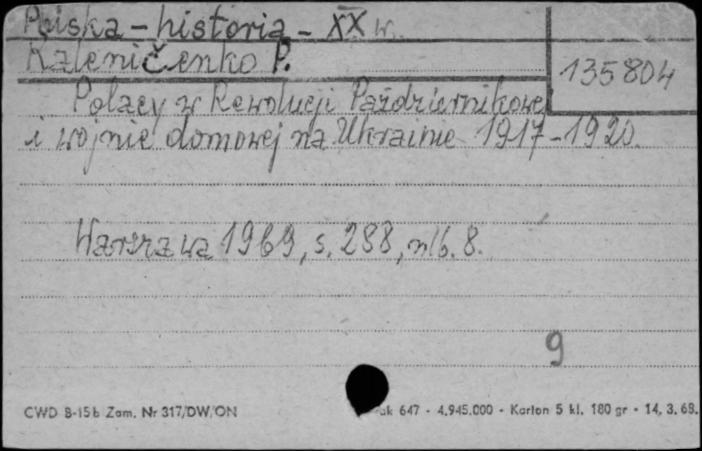 Polska - historia - XX w.
Kaleničenko P.
135804
Polacy w Rewolucji Październikowej
i wojnie domowej na Ukrainie 1917-1920.
Warszawa 1969, s. 288, nlb. 8.
9
CWD B-15b Zam. Nr 317/DW/ON
ak 647 - 4.945.000 - Karton 5 kl. 180 gr - 14. 3. 68.